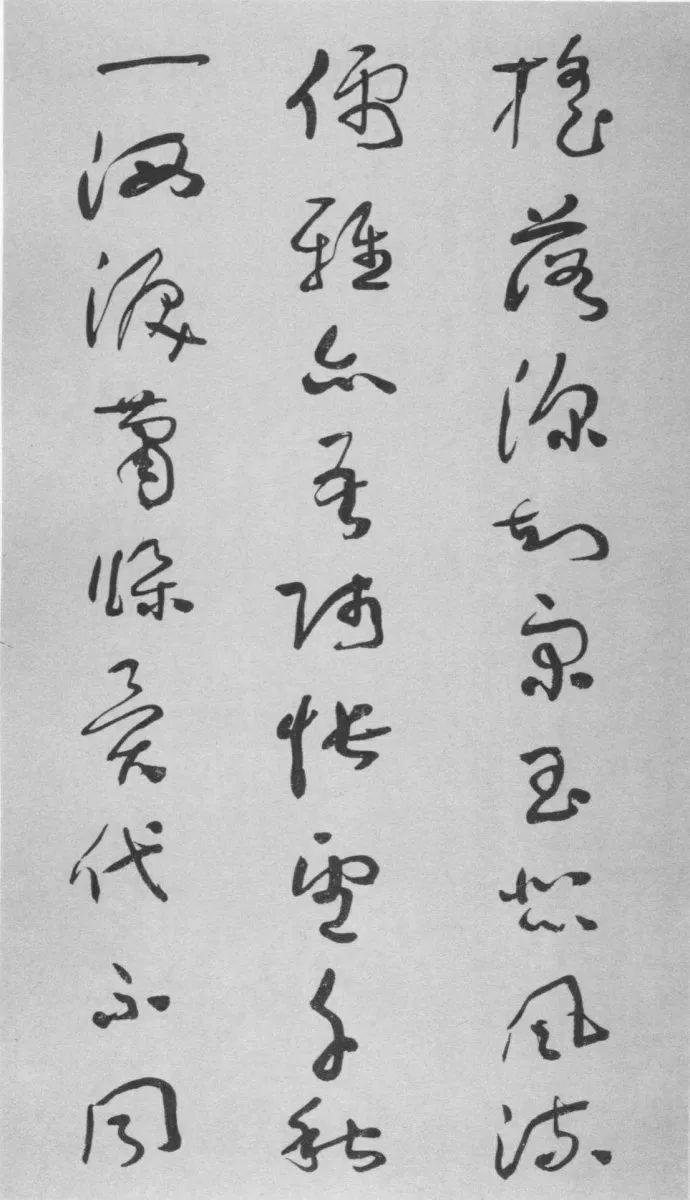 搖落深知宋玉悲風流
儒雅亦吾師悵望千秋
一灑淚蕭條異代不同